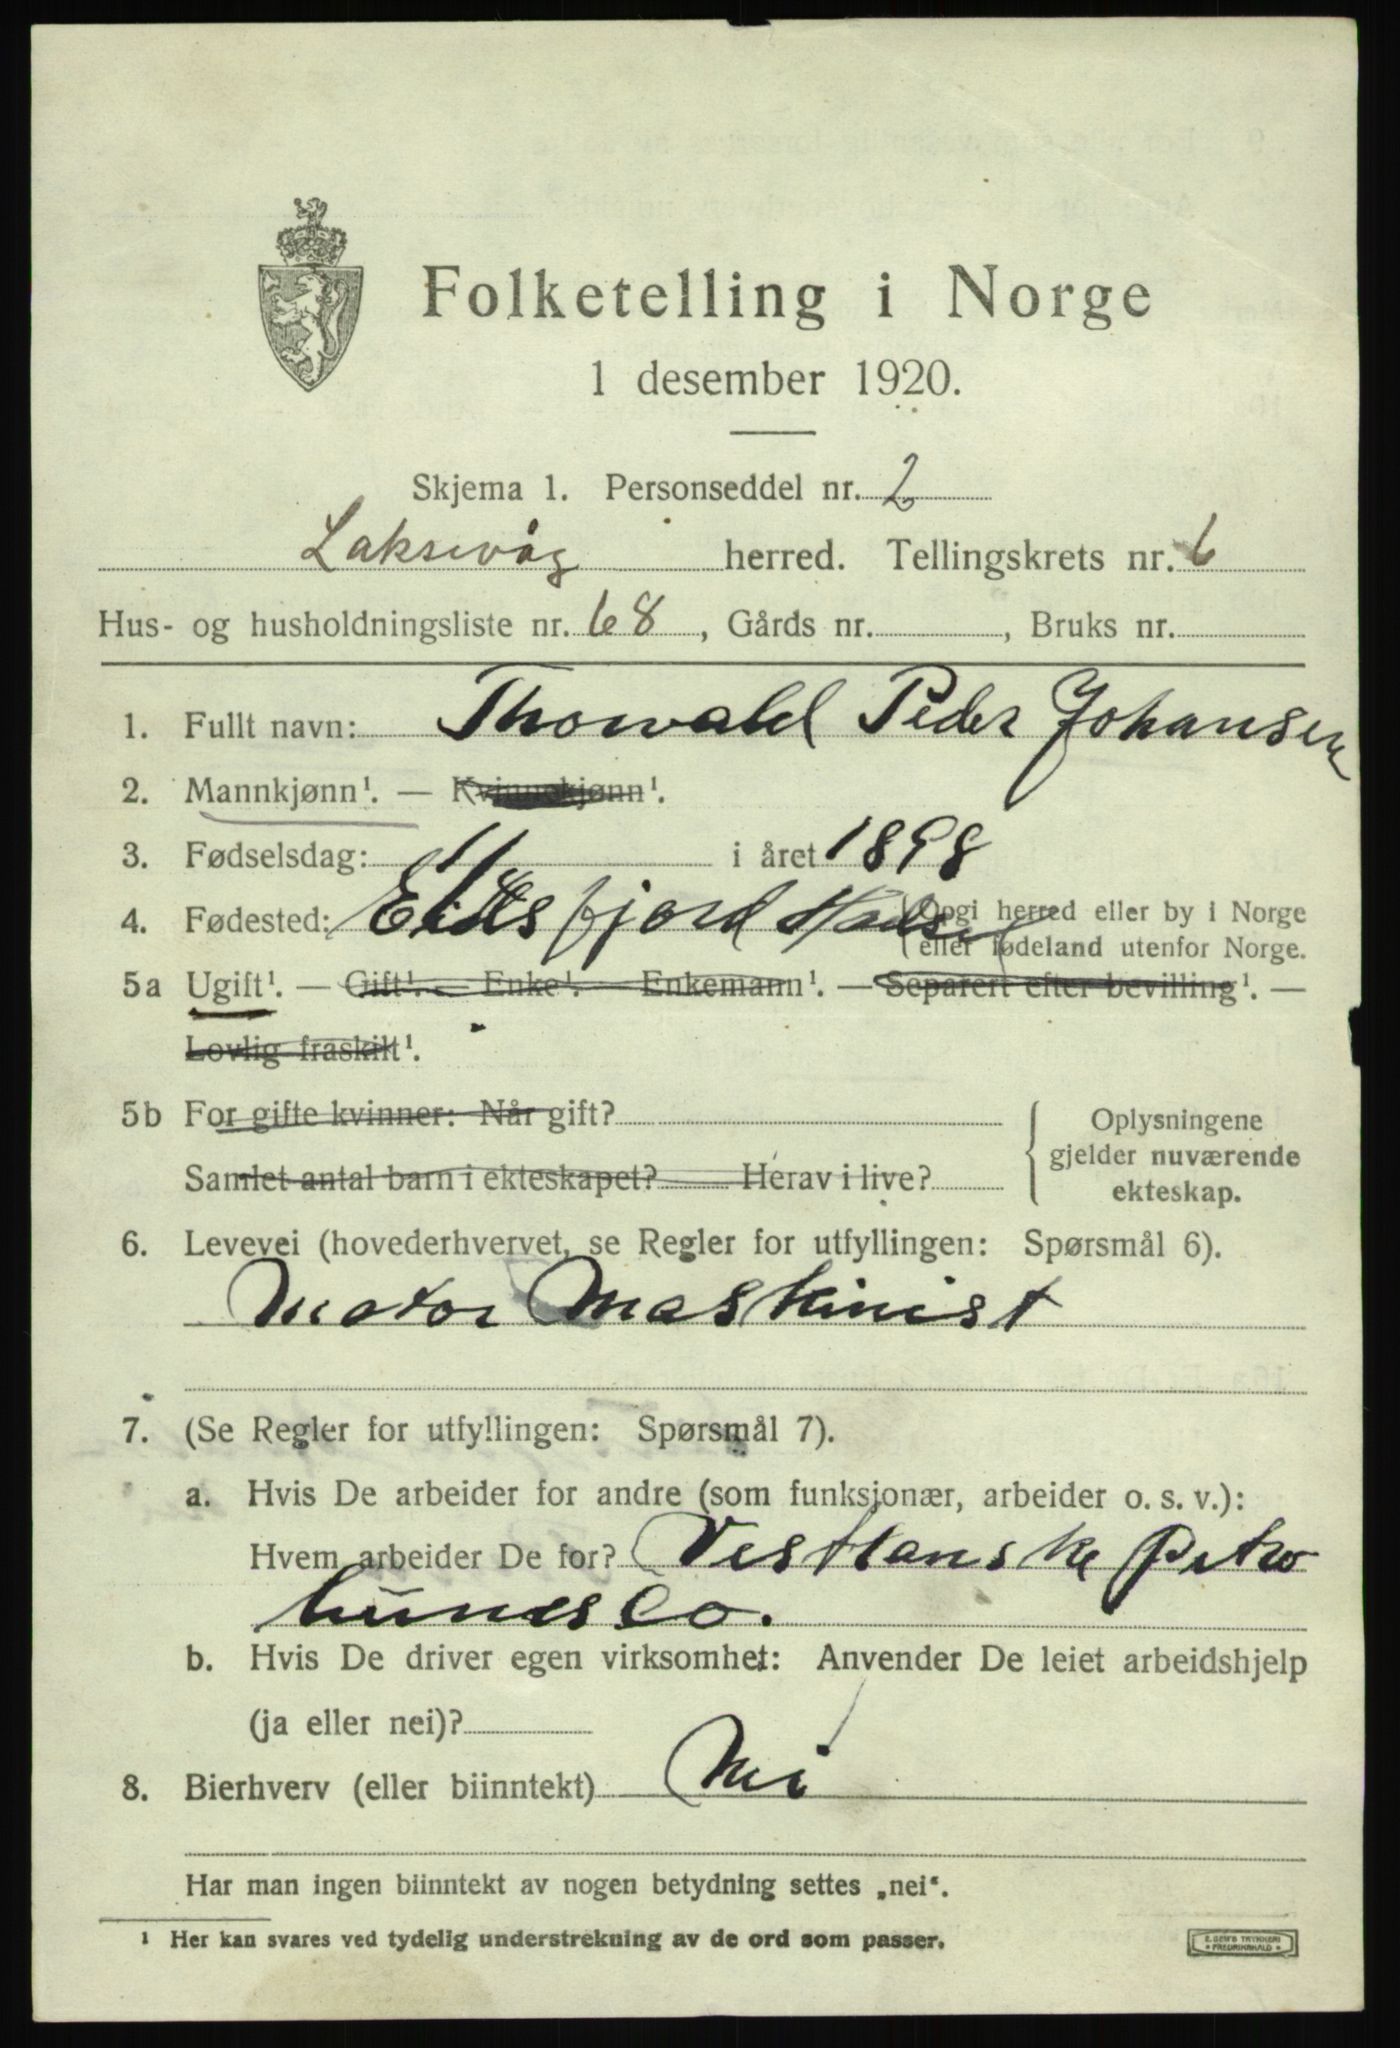 Folketelling i Norge
1 desember 1920.
Skjema 1. Personseddel nr. 2
Laksevåg herred. Tellingskrets nr. 6
Hus- og husholdningsliste nr. 68, Gårds nr. , Bruks nr.
1. Fullt navn: Thorvald Peder Johansen
2. Mannkjønn¹. — Kvinnekjønn¹.
3. Fødselsdag: i året 1898
4. Fødested: Eidsfjord Hadsel (Opgi herred eller by i Norge
eller fødeland utenfor Norge.
5a Ugift¹. — Gift¹. — Enke¹. — Enkemann¹. — Separert efter bevilling¹. —
Lovlig fraskilt¹.
5b For gifte kvinner: Når gift?
Samlet antal barn i ekteskapet? Herav i live?
Oplysningene
gjelder nuværende
ekteskap.
6. Levevei (hovederhvervet, se Regler for utfyllingen: Spørsmål 6).
Motor Maskinist
7. (Se Regler for utfyllingen: Spørsmål 7).
a. Hvis De arbeider for andre (som funksjonær, arbeider o. s. v.):
Hvem arbeider De for? Vestlanske Petro
Co.
b. Hvis De driver egen virksomhet: Anvender De leiet arbeidshjelp
(ja eller nei)?
8. Bierhverv (eller biinntekt) Nei
Har man ingen biinntekt av nogen betydning settes „nei“.
¹ Her kan svares ved tydelig understrekning av de ord som passer.
E. SEM'S TRYKKERI
FREDRIKSHALD